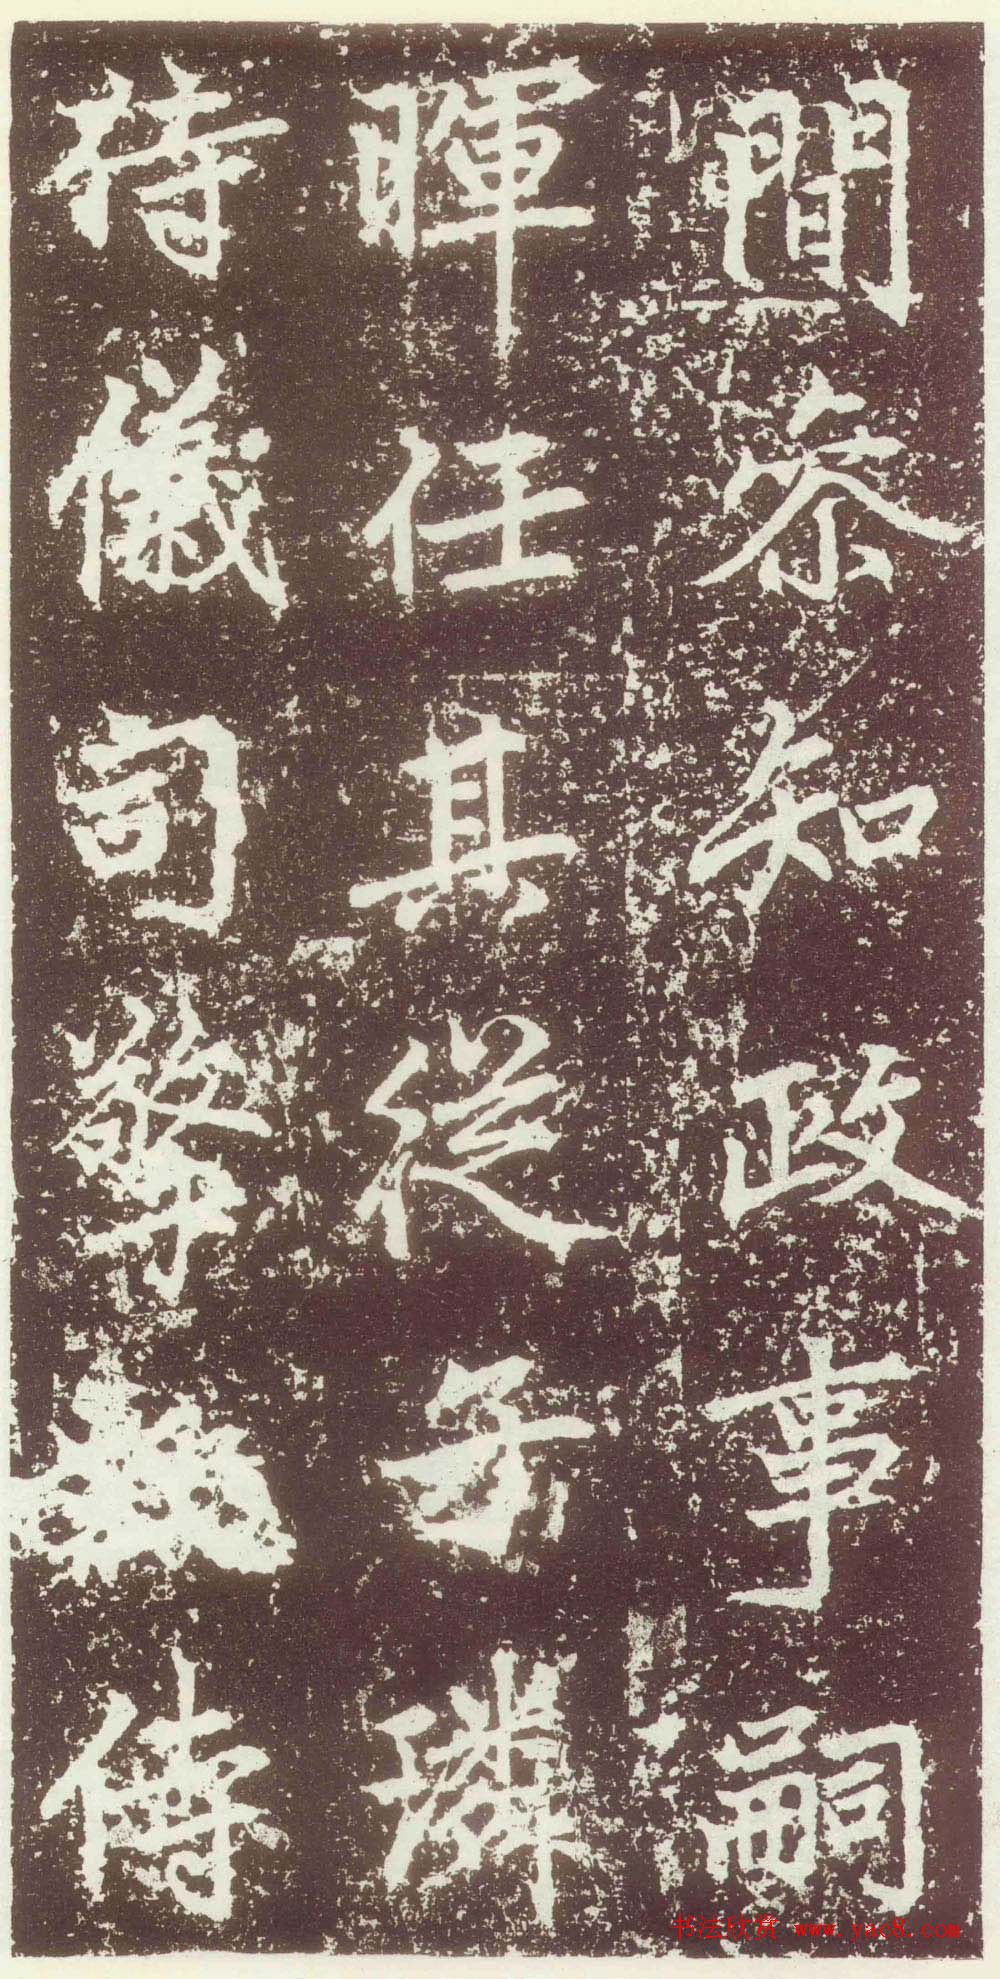 間叅知政事嗣
暉任其從子璘
持儀司擎傅
书法欣赏 www.yac8.com